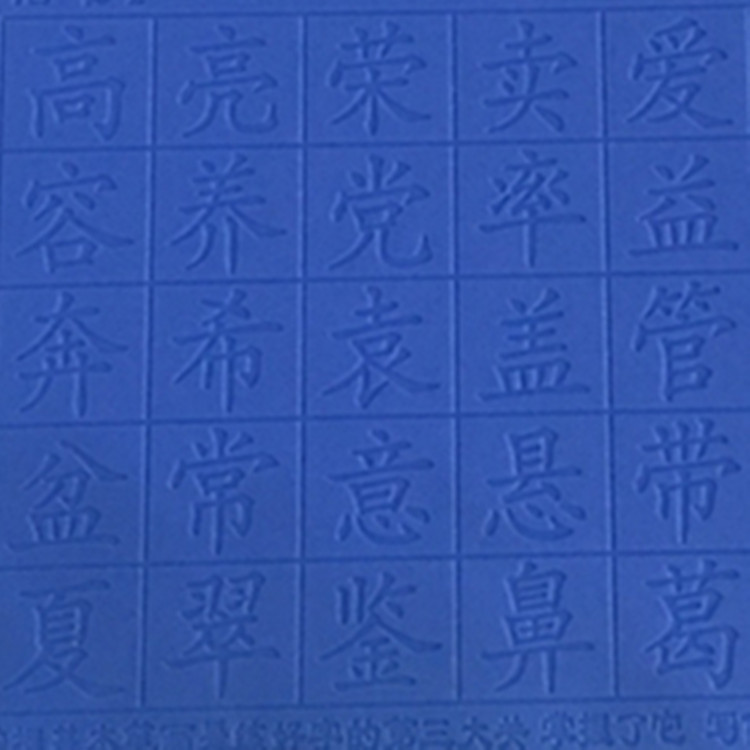 高亮荣卖爱
容养党率益
奔希袁盖管
盆常意悬带
夏翠鉴鼻葛